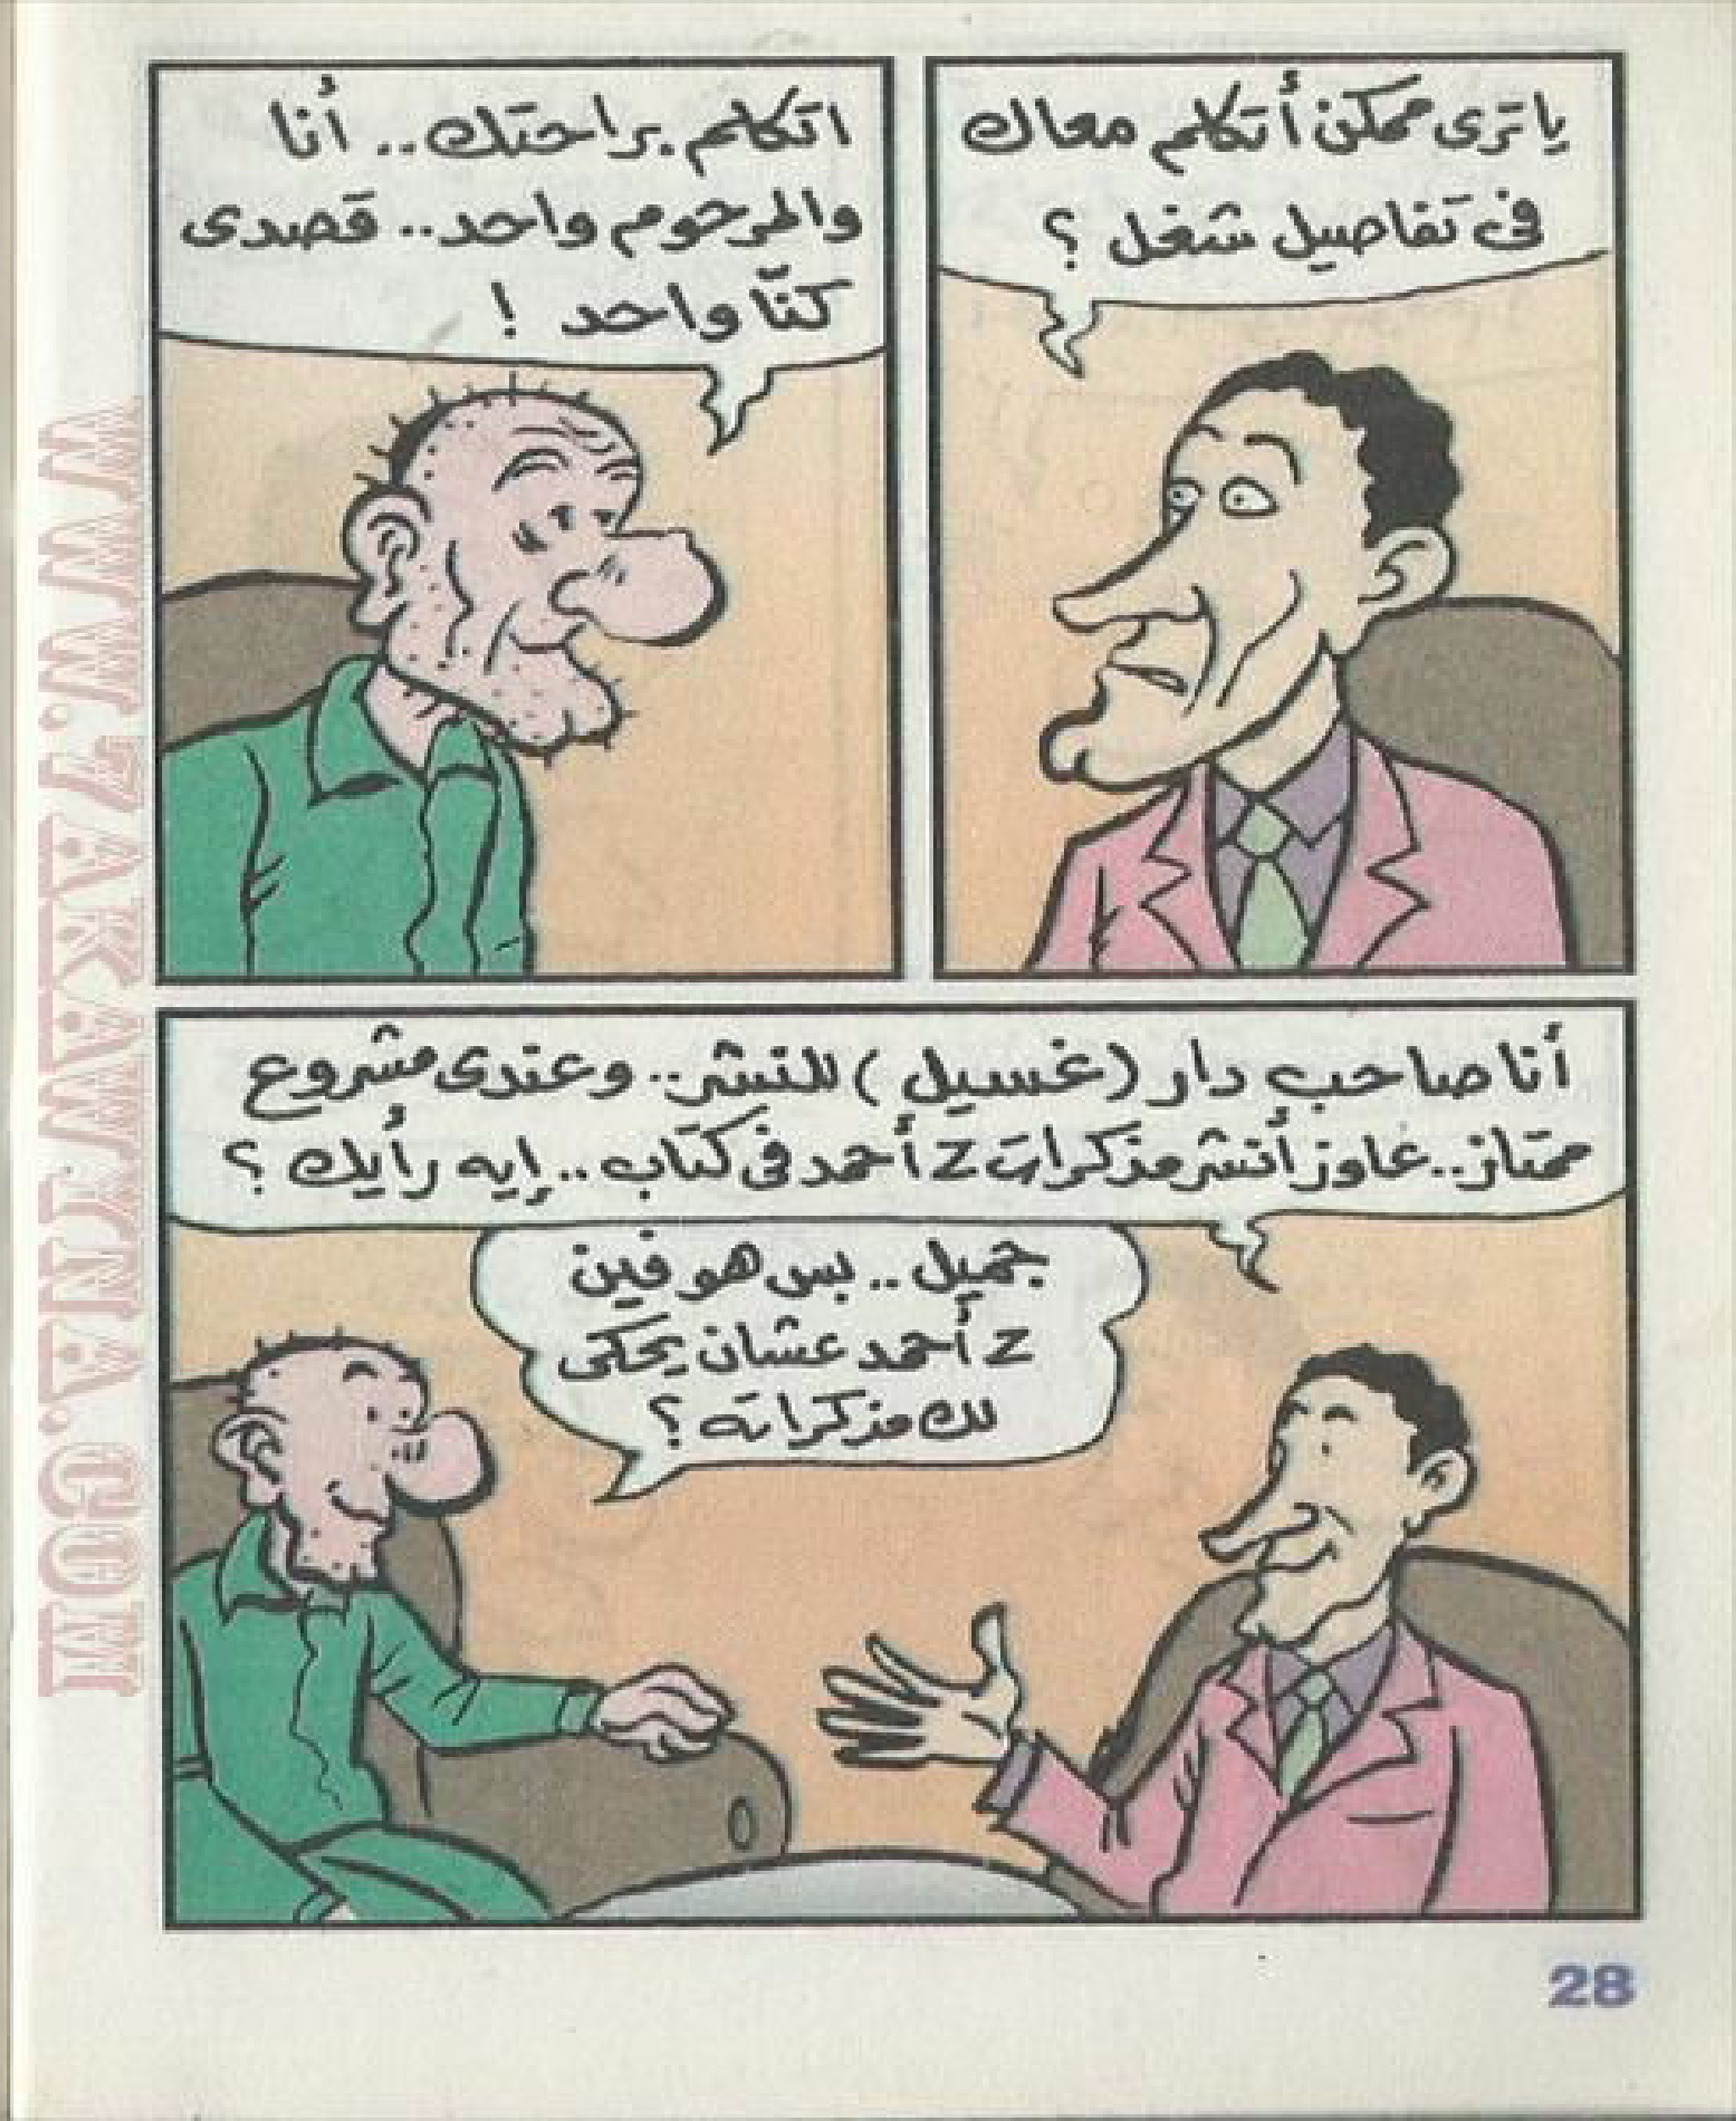 ياترى ممكن أتكلم معاك
فى تفاصيل شغل ؟
اتكلم براحتك.. أنا
والمرحوم واحد.. قصدى
كنّا واحد !
أنا صاحب دار (غسيل) للنشر.. وعندى مشروع
ممتاز.. عاوز أنشر مذكرات z أحمد فى كتاب.. إيه رأيك ؟
جميل.. بس هو فين
z أحمد عشان يحكى
لك مذكراته ؟
28
WWW.ZAKAWATNA.COM